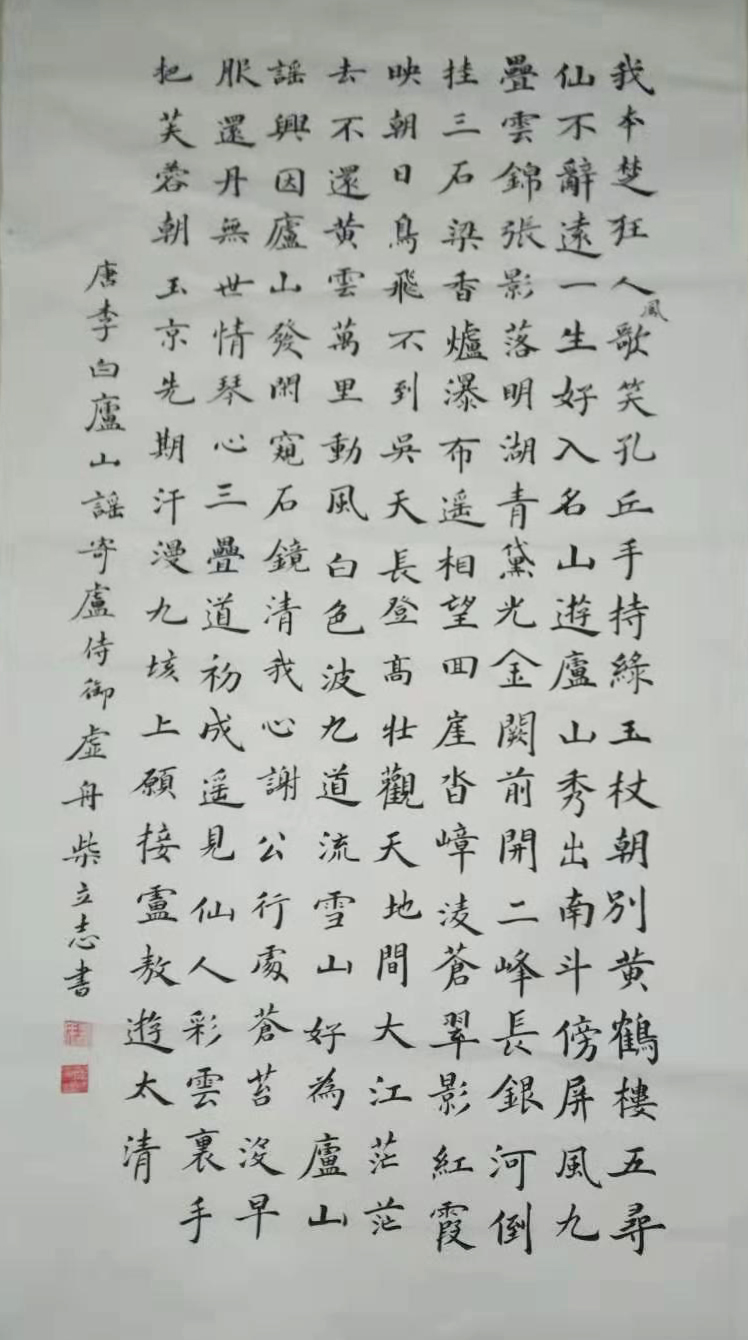 我本楚狂人鳳歌笑孔丘手持綠玉杖朝別黄鶴樓五尋
仙不辭遠一生好入名山遊廬山秀出南斗傍屏風九
疊雲錦張影落明湖青黛光金闕前開二峰長銀河倒
挂三石梁香爐瀑布遥相望囬崖沓嶂淩蒼翠影紅霞
映朝日鳥飛不到吳天長登高壯觀天地間大江茫茫
去不還黄雲萬里動風白色波九道流雪山好為廬山
謡興因廬山發閑窺石鏡清我心謝公行處蒼苔沒早
服還丹無世情琴心三疊道初成遥見仙人彩雲裏手
把芙蓉朝玉京先期汗漫九垓上願接盧敖遊太清
唐李白廬山謡寄盧侍御虚舟柴立志書